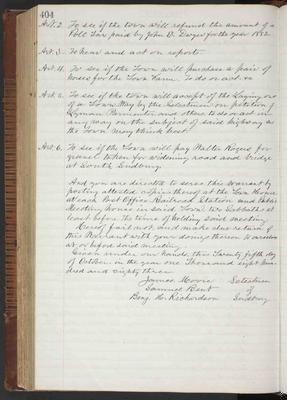 404
Art. 2. To see if the town will refund the amount of a
Poll Tax paid by John D. Dwyer for the year 1882.
Art. 3. To hear and act on reports.
Art. 4. To see if the Town will purchase a pair of
horses for the Town Farm. To do or act on
Art. 5. To see if the town will accept of the laying out
of a Town Way by the Selectmen on petition of
Lyman Parmenter and others to do or act in
any way on the subject of said highway as
the town may think best.
Art. 6. To see if the Town will pay Walter Rogers for
gravel taken for widening road and bridge
at South Sudbury.
And you are directed to serve this warrant by
posting attested copies thereof at the Town House
at each Post Office Railroad Station and Public
Meeting house in said Town two Sabbaths at
least before the time of holding said meeting.
Hereof fail not and make due return of
this Warrant with your doings thereon to
at or before said meeting.
Given under our hands this Twenty fifth day
of October in the year one Thousand eight hun-
dred and eighty three.
James Moore Selectmen
Samuel Bent of
Benj. H. Richardson Sudbury